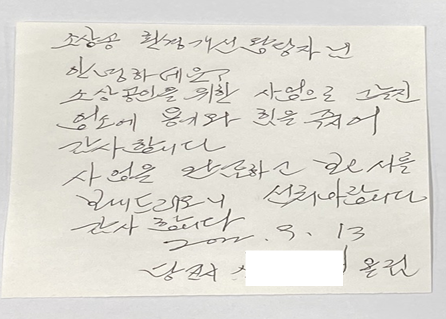 소상공 환경개선 담당자 님
안녕하세요?
소상공인을 위한 사업으로 그늘진
업소에 용기와 힘을 주셔
감사합니다
사업을 완료하고 보고서를
보내드리오니 선처바랍니다
감사합니다
2022. 9. 13
올림